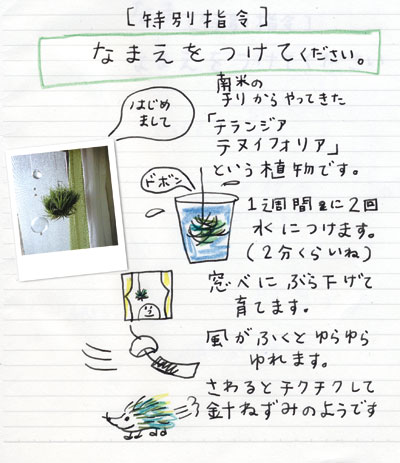 [特別指令]
なまえをつけてください。
南米の
チリからやってきた
はじめ
まして
「テランジア
テヌイフォリア」
という植物です。
ドボン
1週間に2回
水につけます。
(2分くらいね)
窓べにぶら下げて
育てます。
風がふくとゆらゆら
ゆれます。
さわるとチクチクして
針ねずみのようです